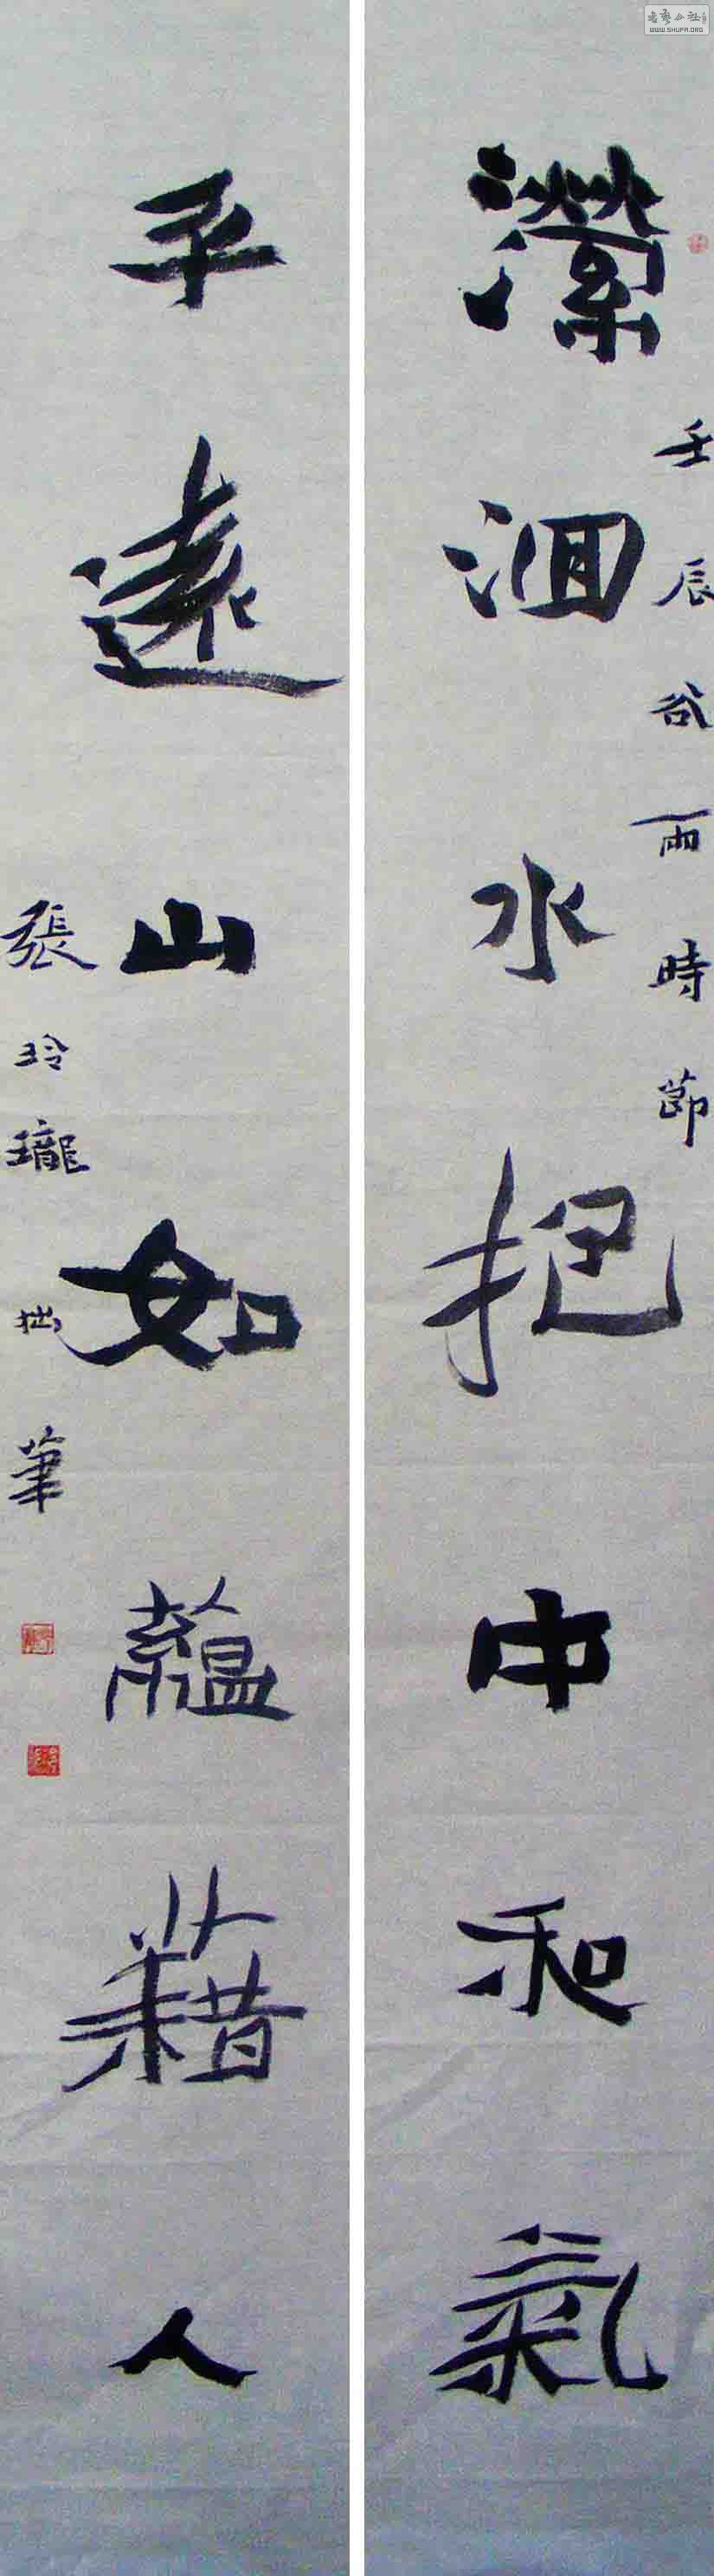 壬辰谷雨時節
瀠洄水抱中和氣
平遠山如蘊藉人
張玲瓏拙筆
WWW.SHUFA.ORG